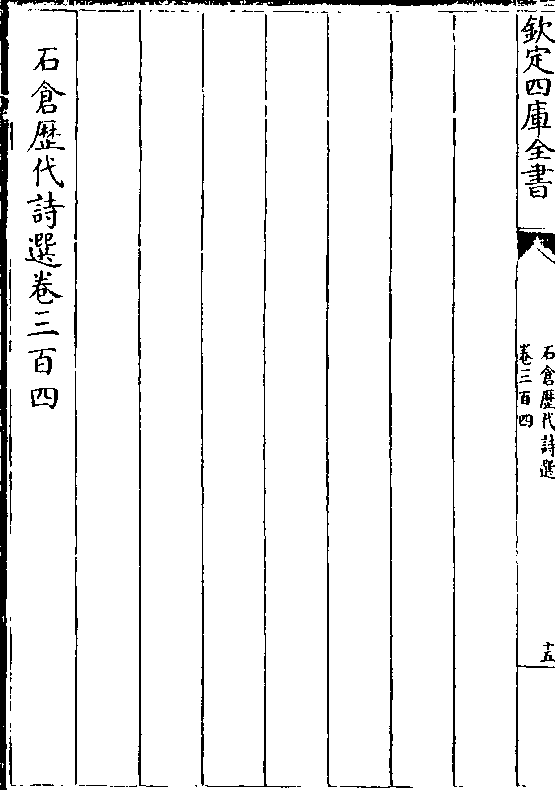 欽定四庫全書
石倉歷代詩選
卷三百四
十五
石倉歷代詩選卷三百四